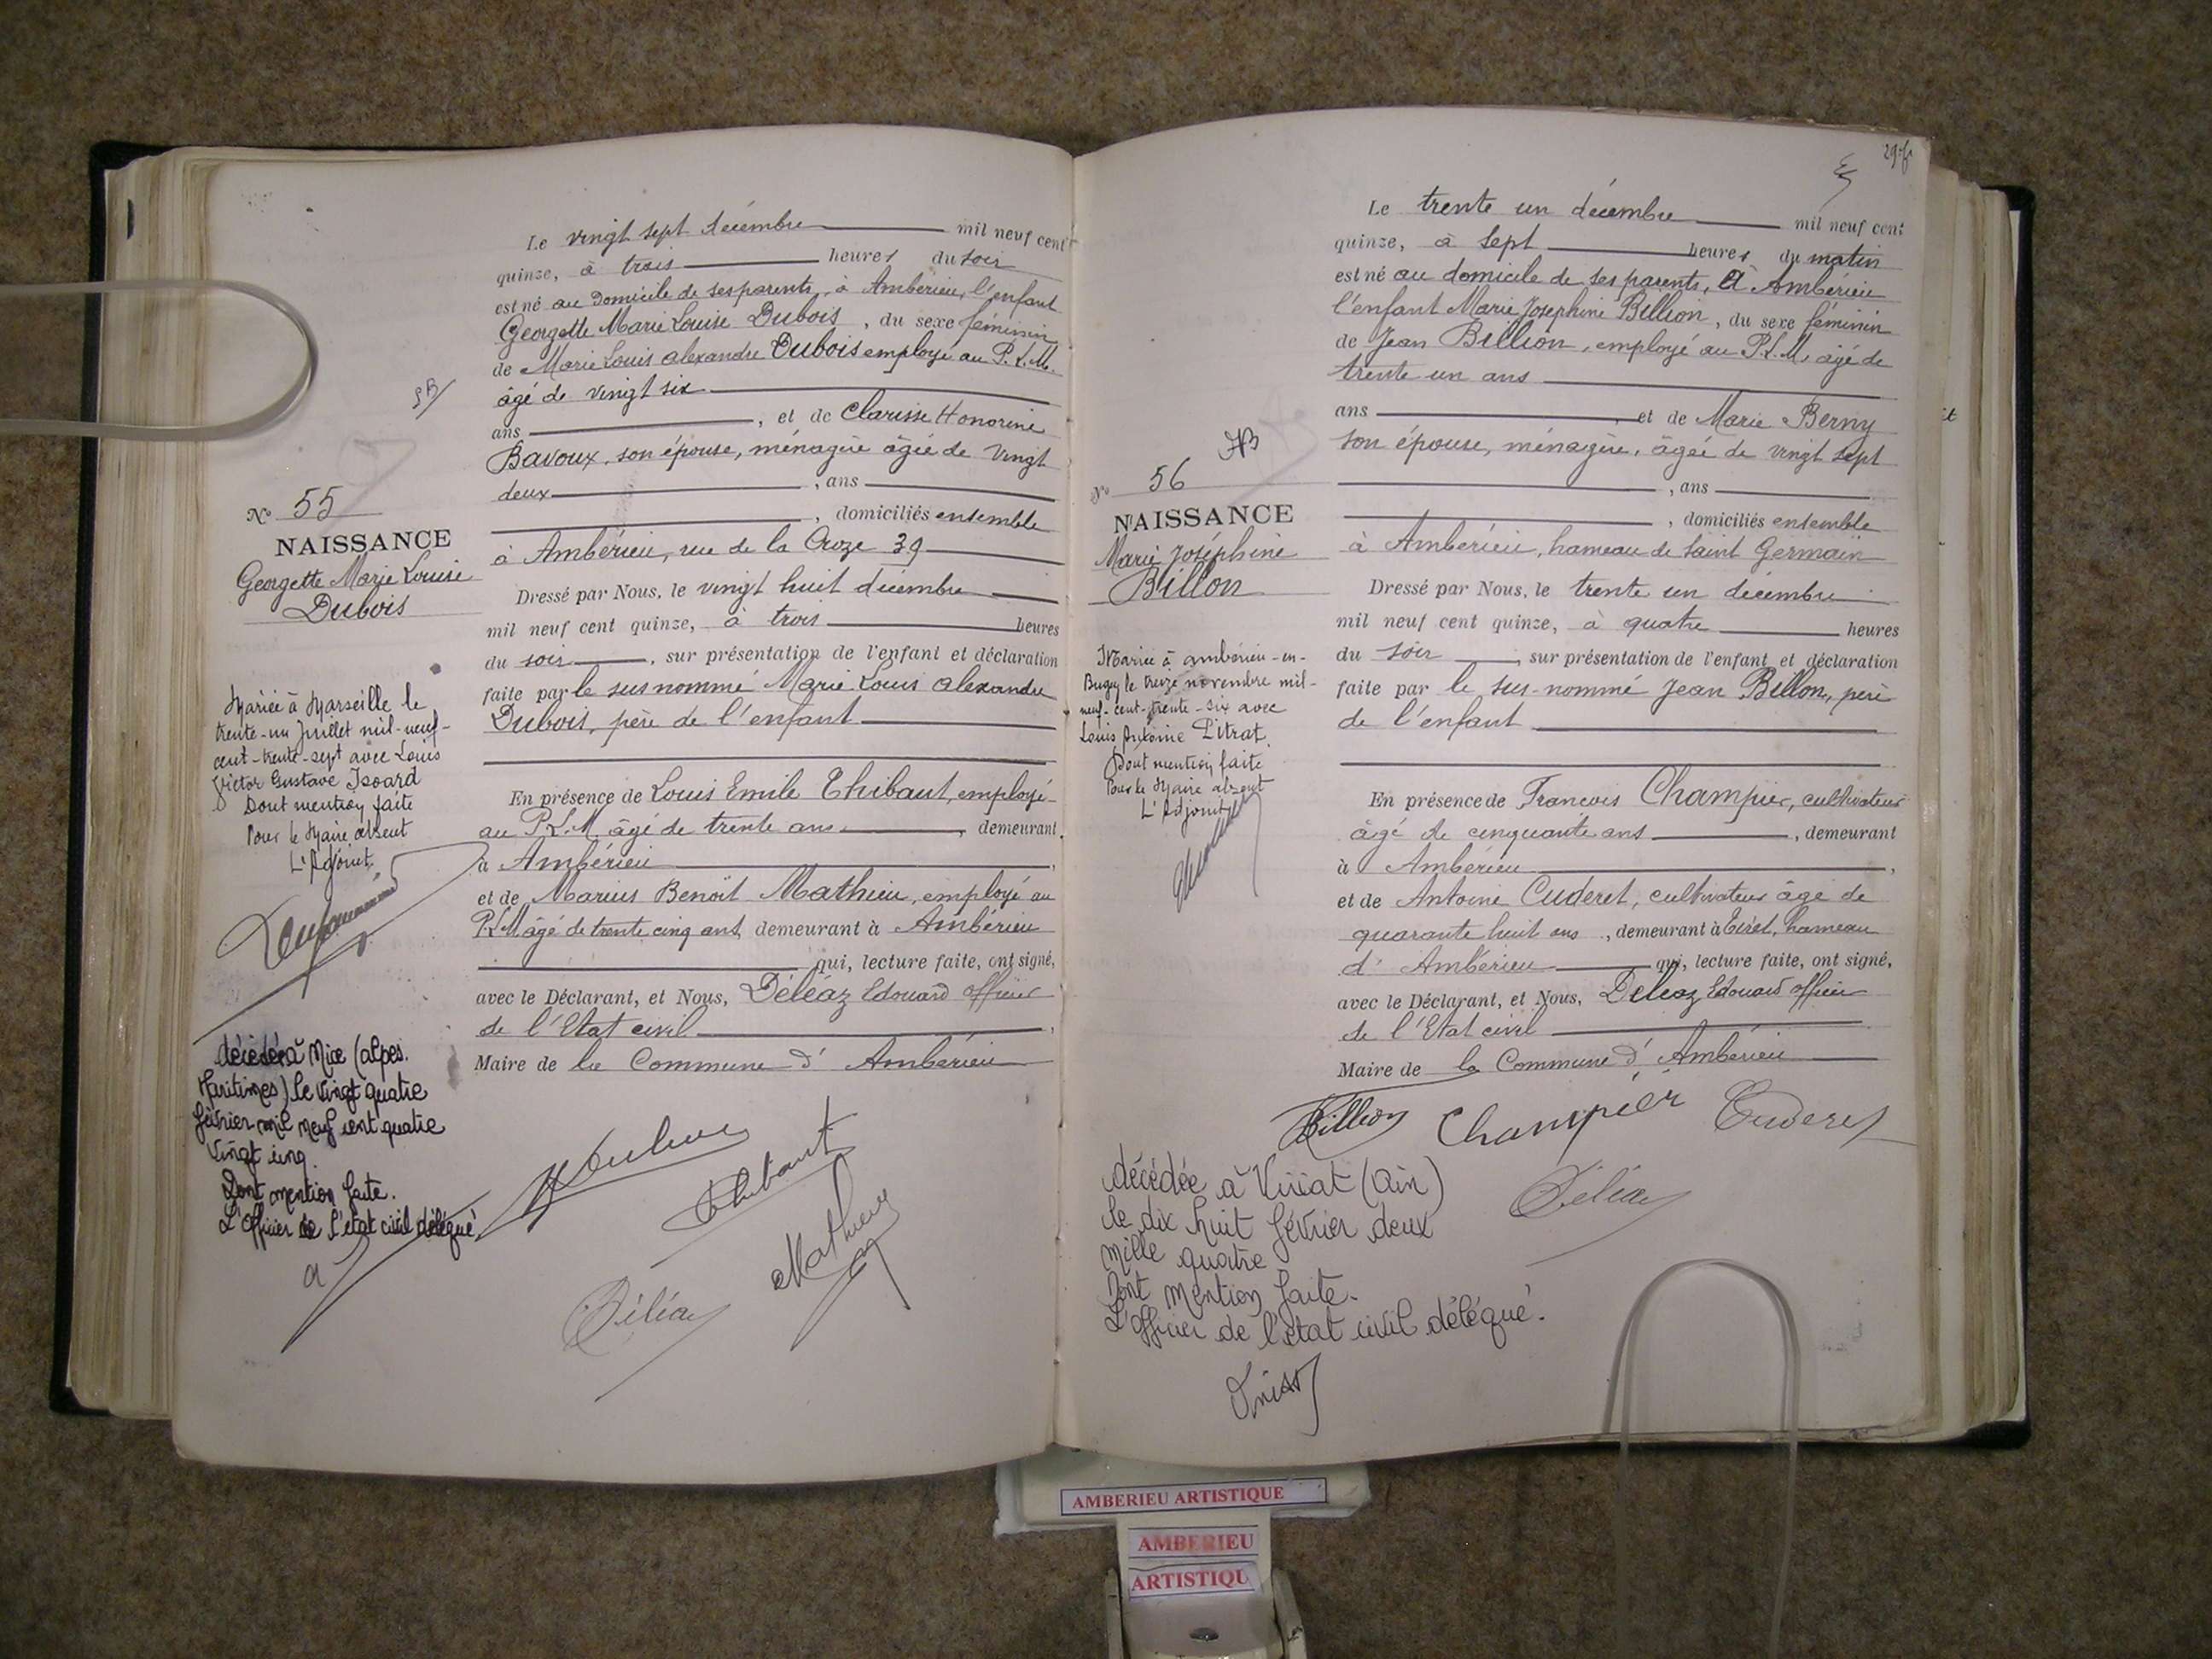 Le vingt sept décembre mil neuf cent
quinze, à trois heures du soir
est né au domicile de ses parents, à Ambérieu, l'enfant
Georgette Marie Louise Dubois, du sexe féminin
de Marie Louis Alexandre Dubois employé au P.L.M.
âgé de vingt six
ans, et de Clarisse Honorine
Bavoux, son épouse, ménagère âgée de vingt
deux, ans
, domiciliés ensemble
à Ambérieu, rue de la Croze 39
Dressé par Nous, le vingt huit décembre
mil neuf cent quinze, à trois heures
du soir, sur présentation de l'enfant et déclaration
faite par le susnommé Marie Louis Alexandre
Dubois, père de l'enfant
En présence de Louis Emile Thibaut, employé
au P.L.M. âgé de trente ans, demeurant
à Ambérieu,
et de Marius Benoît Mathieu, employé au
P.L.M âgé de trente cinq ans, demeurant à Ambérieu
qui, lecture faite, ont signé,
avec le Déclarant, et Nous, Déléaz Edouard officier
de l'Etat civil,
Maire de la Commune d'Ambérieu
Thibaut
Mathieu
Déléaz
N° 55
NAISSANCE
Georgette Marie Louise
Dubois
Mariée à Marseille le
trente-un Juillet mil-neuf-
cent-trente-sept avec Louis
Victor Gustave Isoard
Dont mention faite
Pour le Maire absent
L'Adjoint
décédée à Nice (alpes.
Maritimes) le vingt quatre
février mil neuf cent quatre
vingt cinq.
Dont mention faite.
L'officier de l'état civil délégué
Le trente un décembre mil neuf cent
quinze, à sept heures du matin
est né au domicile de ses parents, à Ambérieu
l'enfant Marie Joséphine Billion, du sexe féminin
de Jean Billion, employé au P.L.M. âgé de
trente un ans
ans, et de Marie Berny
son épouse, ménagère, âgée de vingt sept
, ans
, domiciliés ensemble
à Ambérieu, hameau de Saint Germain
Dressé par Nous, le trente un décembre
mil neuf cent quinze, à quatre heures
du soir, sur présentation de l'enfant et déclaration
faite par le sus-nommé Jean Billon, père
de l'enfant
En présence de François Champier, cultivateur
âgé de cinquante ans, demeurant
à Ambérieu,
et de Antoine Cuderet, cultivateur âgé de
quarante huit ans, demeurant à Tiret, hameau
d'Ambérieu qui, lecture faite, ont signé,
avec le Déclarant, et Nous, Déléaz Edouard officier
de l'Etat civil
Maire de la Commune d'Ambérieu
Billion Champier Cuderet
Déléaz
N° 56
NAISSANCE
Marie Joséphine
Billon
Mariée à Ambérieu-en-
Bugey le treize novembre mil-
neuf-cent-trente-six avec
Louis Antoine Pitrat.
Dont mention faite
Pour le Maire absent
L'Adjoint
décédée à Viriat (Ain)
le dix huit février deux
mille quatre
Dont mention faite.
L'officier de l'état civil délégué.
AMBERIEU ARTISTIQUE
AMBERIEU
ARTISTIQU